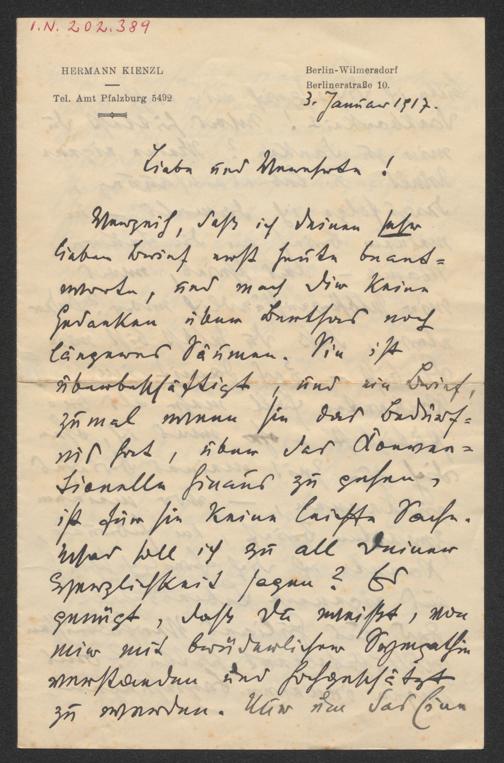 I.N. 202.389
HERMANN KIENZL
Tel. Amt Pfalzburg 5492
Berlin-Wilmersdorf
Berlinerstraße 10.
3. Januar 1917.
Liebe und Verehrte!
Verzeih, daß ich deinen sehr
lieben Brief erst heute beant-
worte, und mach dir keine
Gedanken über Berthas noch
längeres Säumen. Sie ist
überbeschäftigt, und ein Brief,
zumal wenn sie das Bedürf-
nis hat, über das Konven-
tionelle hinaus zu gehen,
ist für sie keine leichte Sache.
Was soll ich zu all deiner
Herzlichkeit sagen? Es
genügt, daß du weißt, von
mir mit brüderlicher Sympathie
verstanden und hochgeschätzt
zu werden. Nur um das Eine